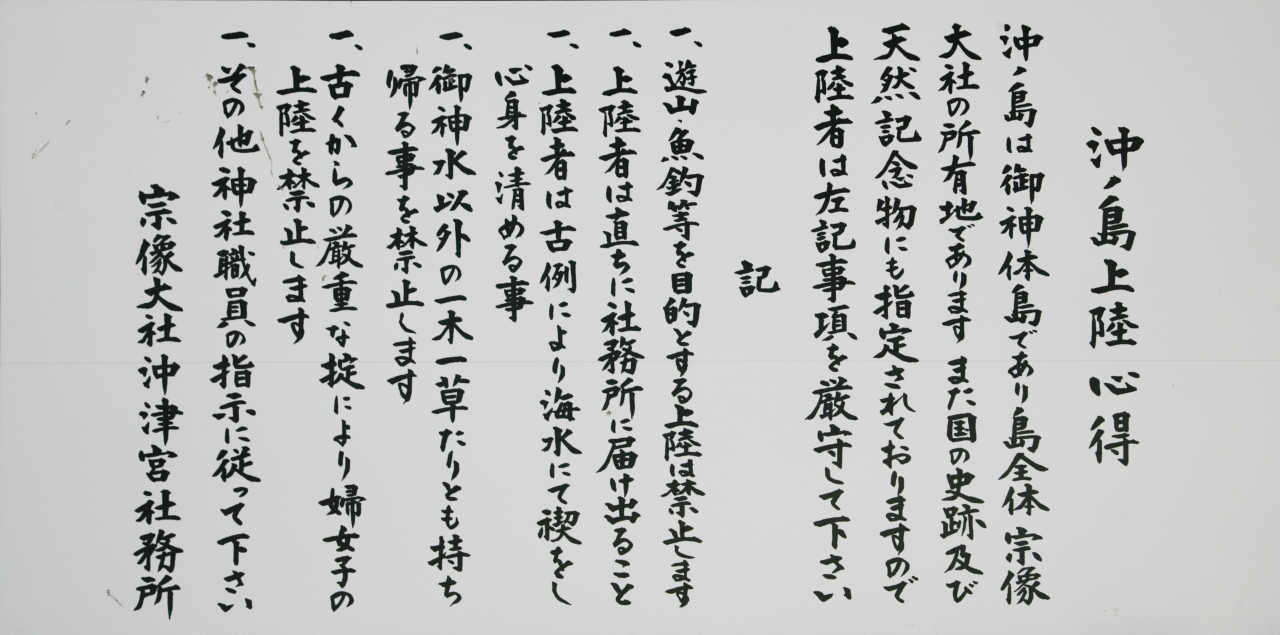 沖ノ島上陸心得
沖ノ島は御神体島であり島全体宗像
大社の所有地であります また国の史跡及び
天然記念物にも指定されておりますので
上陸者は左記事項を厳守して下さい
記
一、遊山・魚釣等を目的とする上陸は禁止します
一、上陸者は直ちに社務所に届け出ること
一、上陸者は古例により海水にて禊をし
心身を清める事
一、御神水以外の一木一草たりとも持ち
帰る事を禁止します
一、古くからの厳重な掟により婦女子の
上陸を禁止します
一、その他神社職員の指示に従って下さい
宗像大社沖津宮社務所